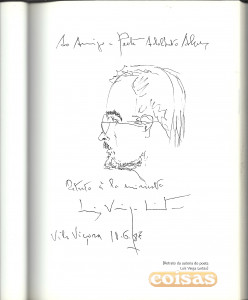 Ao Amigo e Poeta Adalberto Alves
Retrato à la minuta
Luiz Veiga Leitão
Vila Viçosa 18.6.82
(Retrato da autoria do poeta
Luiz Veiga Leitão)
coisas